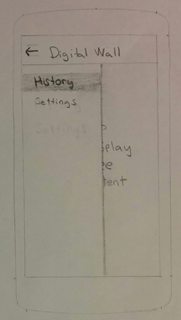 ← Digital Wall
History
Settings
Settings
elay
e
tent